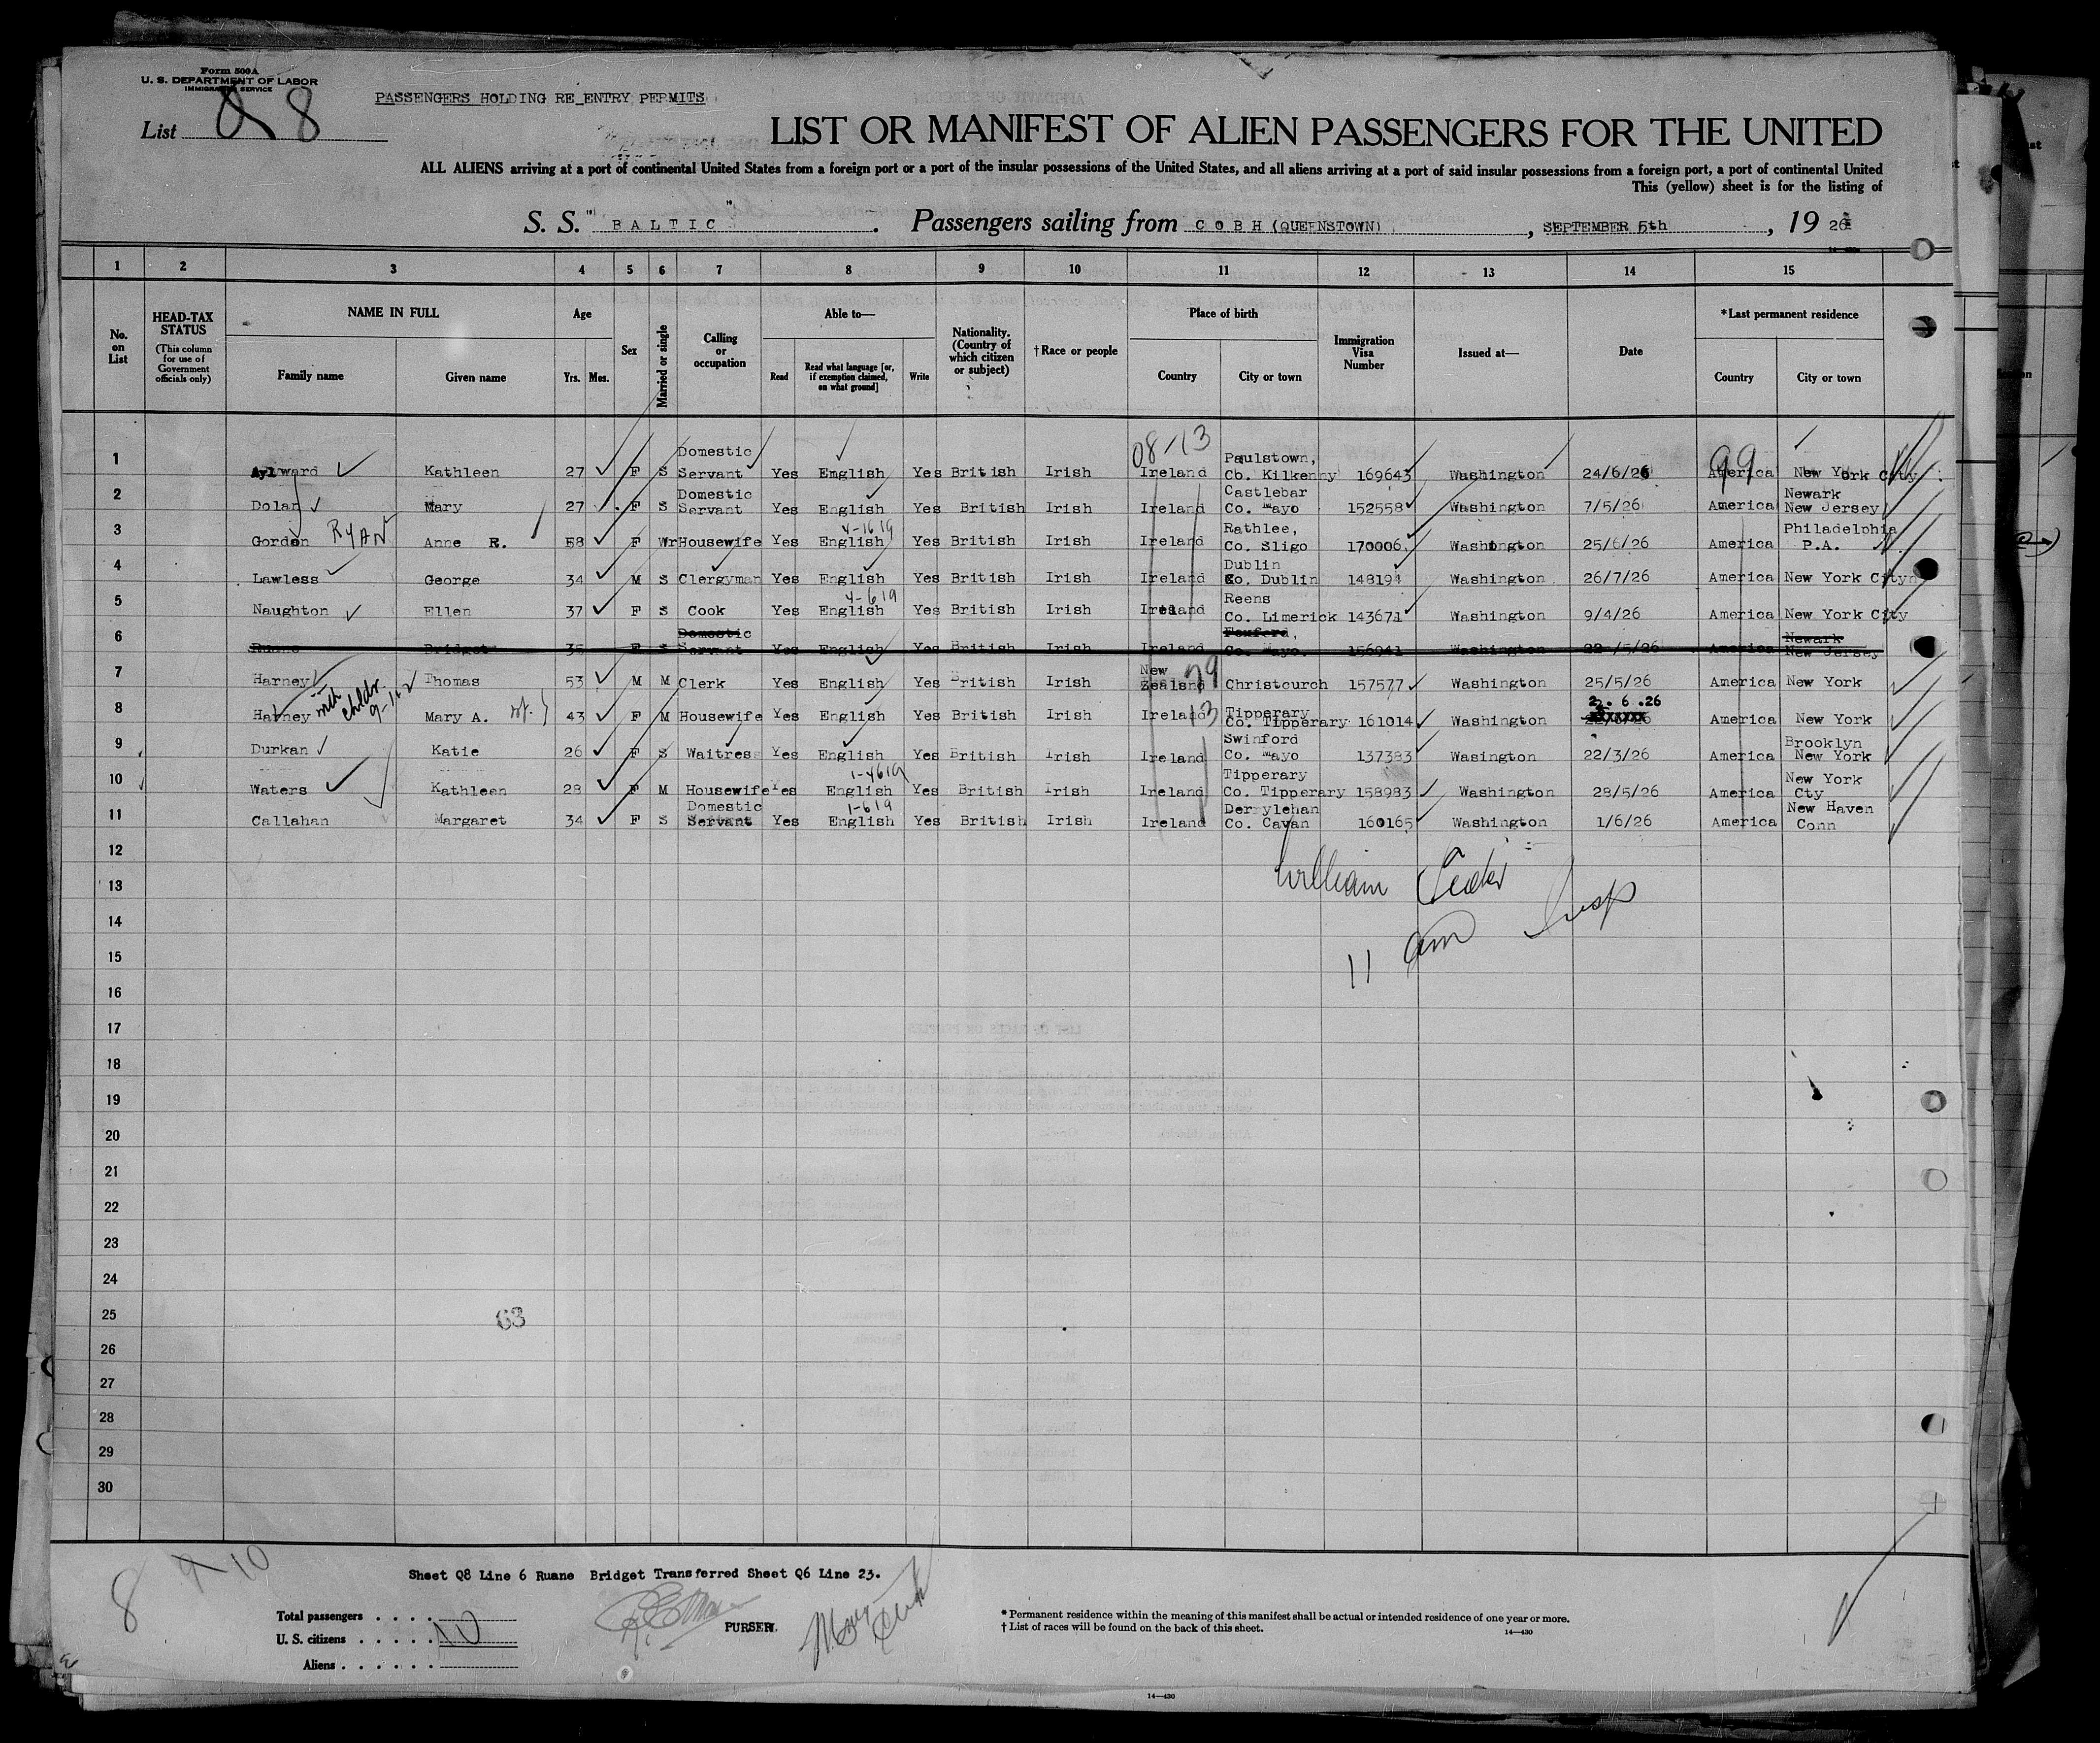 Form 500A
U. S. DEPARTMENT OF LABOR
IMMIGRATION SERVICE
PASSENGERS HOLDING RE_ENTRY PERMITS
List 8
LIST OR MANIFEST OF ALIEN PASSENGERS FOR THE UNITED
ALL ALIENS arriving at a port of continental United States from a foreign port or a port of the insular possessions of the United States, and all aliens arriving at a port of said insular possessions from a foreign port, a port of continental United
This (yellow) sheet is for the listing of
S. S. "BALTIC". Passengers sailing from COBH (QUEENSTOWN), SEPTEMBER 5th, 1926
1 2 3 4 5 6 7 8 9 10 11 12 13 14 15
No. on List
HEAD-TAX STATUS (This column for use of Government officials only)
NAME IN FULL Family name Given name
Age Yrs. Mos.
Sex
Married or single
Calling or occupation
Able to— Read Read what language [or, if exemption claimed, on what ground] Write
Nationality. (Country of which citizen or subject)
†Race or people
Place of birth Country City or town
Immigration Visa Number
Issued at—
Date
*Last permanent residence Country City or town
08-13 99
1 Aylward Kathleen 27 F S Domestic Servant Yes Emglish Yes British Irish Ireland Paulstown, Co. Kilkenny 169643 Washington 24/6/26 America New York City
2 Dolan Mary 27 F S Domestic Servant Yes English Yes British Irish Ireland Castlebar Co. Mayo 152558 Washington 7/5/26 America Newark New Jersey
4-1619
3 Gordon RYAN Anne R. 58 F Wr Housewife Yes English Yes British Irish Ireland Rathlee, Co. Sligo 170006 Washington 25/6/26 America Philadelphia P.A.
4 Lawless George 34 M S Clergyman Yes English Yes British Irish Ireland Dublin Co. Dublin 148194 Washington 26/7/26 America New York City
4-619
5 Naughton Ellen 37 F S Cook Yes English Yes British Irish Ireland Reens Co. Limerick 143671 Washington 9/4/26 America New York City
6 Ruane Bridget 35 F S Domestic Servant Yes English Yes British Irish Ireland Foxford, Co. Mayo. 156941 Washington 22/5/26 America Newark New Jersey
7 Harney Thomas 53 M M Clerk Yes English Yes British Irish New Zealand 79 Christcurch 157577 Washington 25/5/26 America New York
with childr. 9-1+2
8 Harney Mary A. 43 F M Housewife Yes English Yes British Irish Ireland 13 Tipperary Co. Tipperary 161014 Washington 2. 6 .26 America New York
9 Durkan Katie 26 F S Waitress Yes English Yes British Irish Ireland Swinford Co. Mayo 137383 Wasington 22/3/26 America Brooklyn New York
1-4619
10 Waters Kathleen 28 F M Housewife Yes English Yes British Irish Ireland Tipperary Co. Tipperary 158983 Washington 28/5/26 America New York Cty
1-619
11 Callahan Margaret 34 F S Domestic Servant Yes English Yes British Irish Ireland Derrylehan Co. Cavan 160165 Washington 1/6/26 America New Haven Conn
12
William
13
Insp
14
11 am
15
16
17
18
19
20
21
22
23
24
25
63
26
27
28
29
30
8 10
Sheet Q8 Line 6 Ruane Bridget Transferred Sheet Q6 Line 23.
Total passengers . . . .
U. S. citizens . . . . . 10
Aliens . . . . . .
PURSER.
* Permanent residence within the meaning of this manifest shall be actual or intended residence of one year or more.
† List of races will be found on the back of this sheet.
14—430
14—430